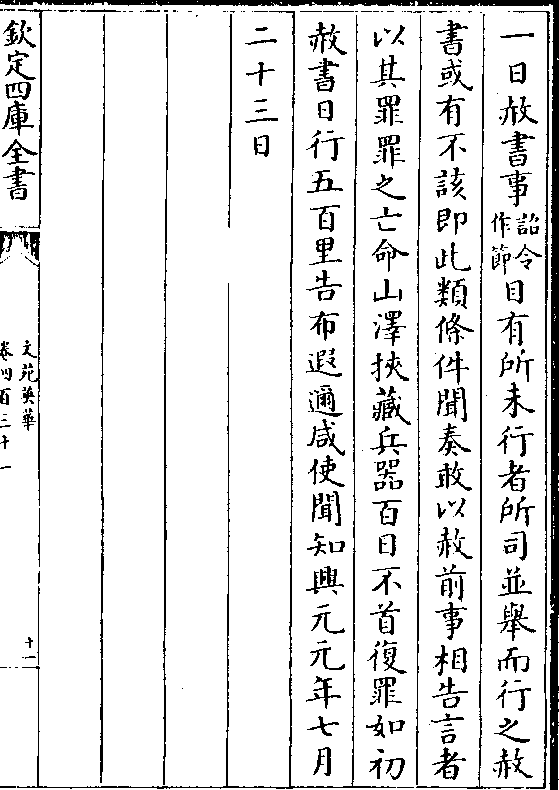 一日赦書事詔令作節目有所未行者所司並舉而行之赦
書或有不該即此類條件聞奏敢以赦前事相告言者
以其罪罪之亡命山澤挾藏兵器百日不首復罪如初
赦書日行五百里告布遐邇咸使聞知興元元年七月
二十三日
欽定四庫全書
文苑英華
卷四百三十一
十一